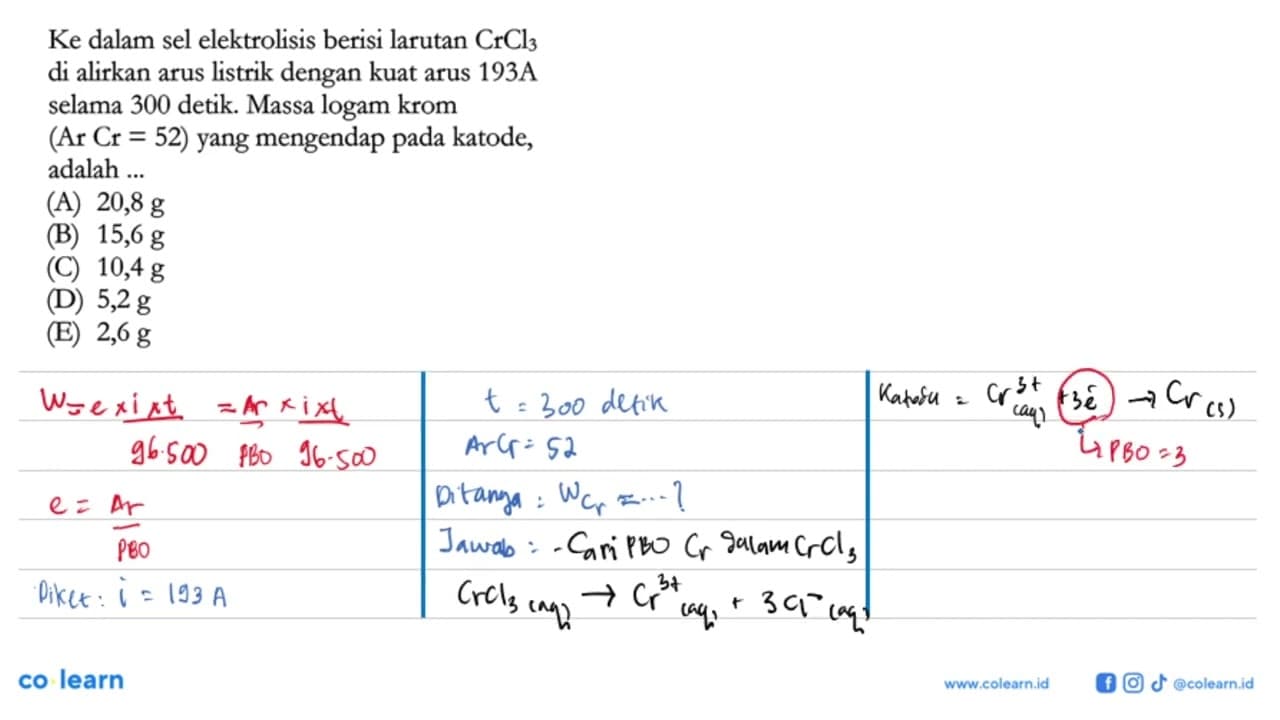 Ke dalam sel elektrolisis berisi larutan CrCl₃
di alirkan arus listrik dengan kuat arus 193A
selama 300 detik. Massa logam krom
(Ar Cr = 52) yang mengendap pada katode,
adalah ...
(A) 20,8 g
(B) 15,6 g
(C) 10,4 g
(D) 5,2 g
(E) 2,6 g
W = e x i x t = Ar x i x t
96.500 PBO 96.500
e = Ar
PBO
Diket : i = 193 A
t = 300 detik
Ar Cr = 52
Ditanya : W Cr = ... ?
Jawab : - Cari PBO Cr dalam CrCl₃
CrCl₃ (aq) → Cr³⁺ (aq) + 3 Cl⁻ (aq)
Katoda = Cr³⁺ (aq) + 3e → Cr (s)
↳ PBO = 3
co learn
www.colearn.id
@colearn.id